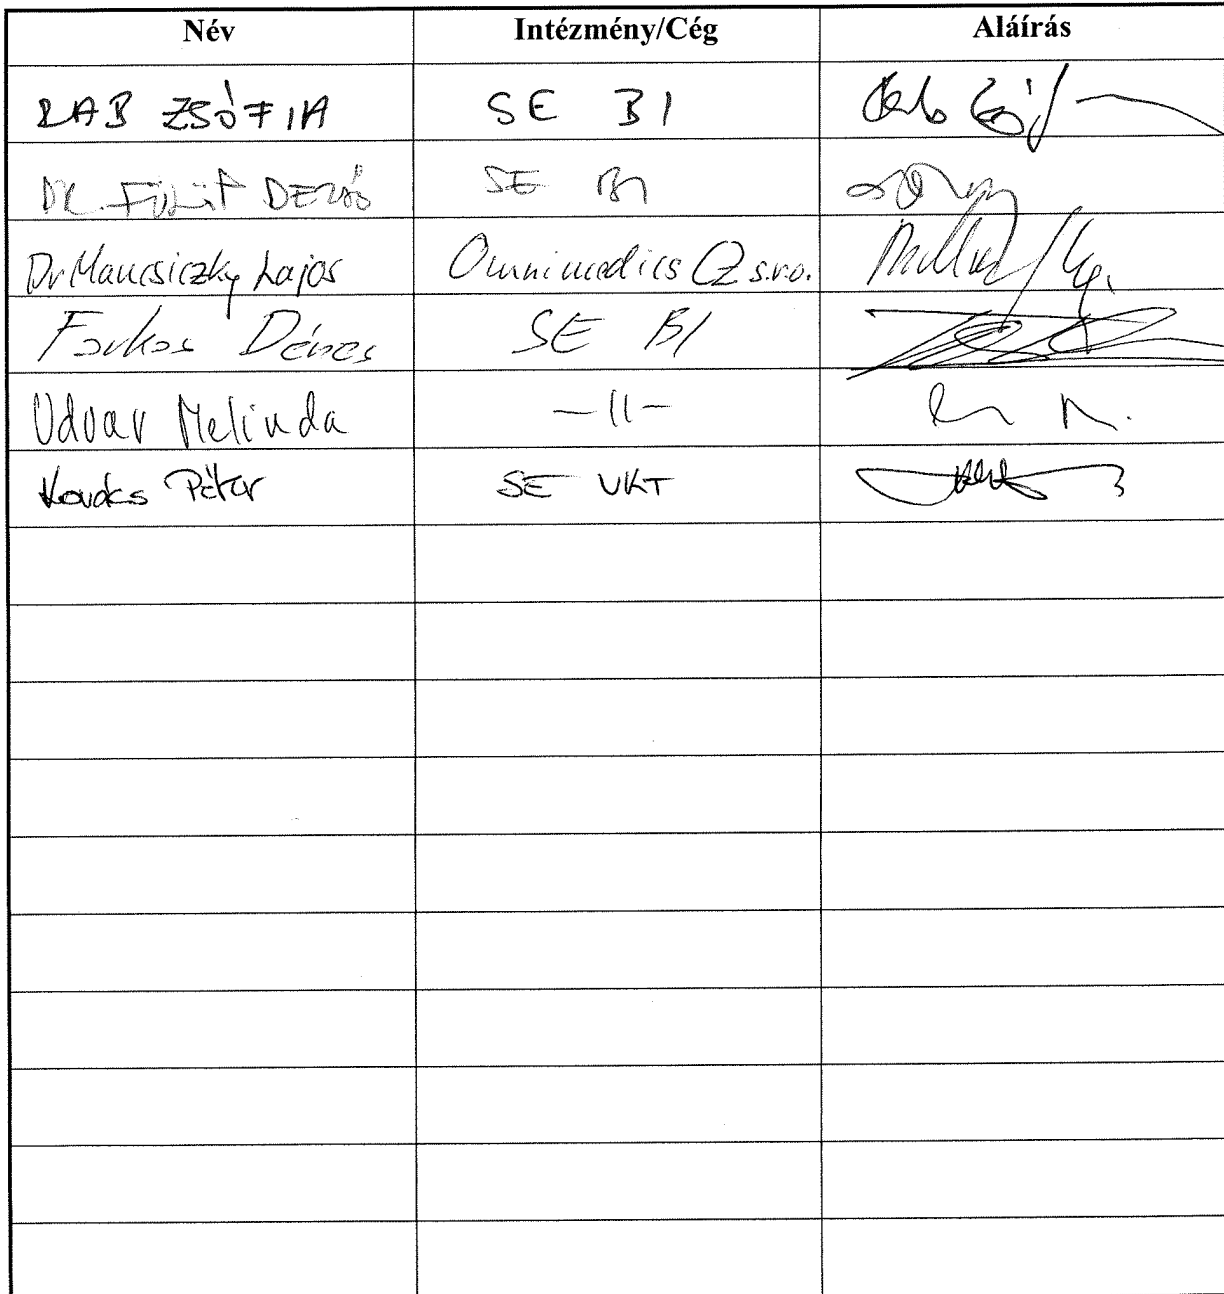 Név Intézmény/Cég Aláírás
RAB ZSÓFIA SE BI
DR. FÜLÖP DEZSŐ SE BI
Dr Mancsiczky Lajos Omnimedics CZ s.r.o.
Farkas Dénes SE BI
Udvar Melinda -||-
Kovács Péter SE VKT